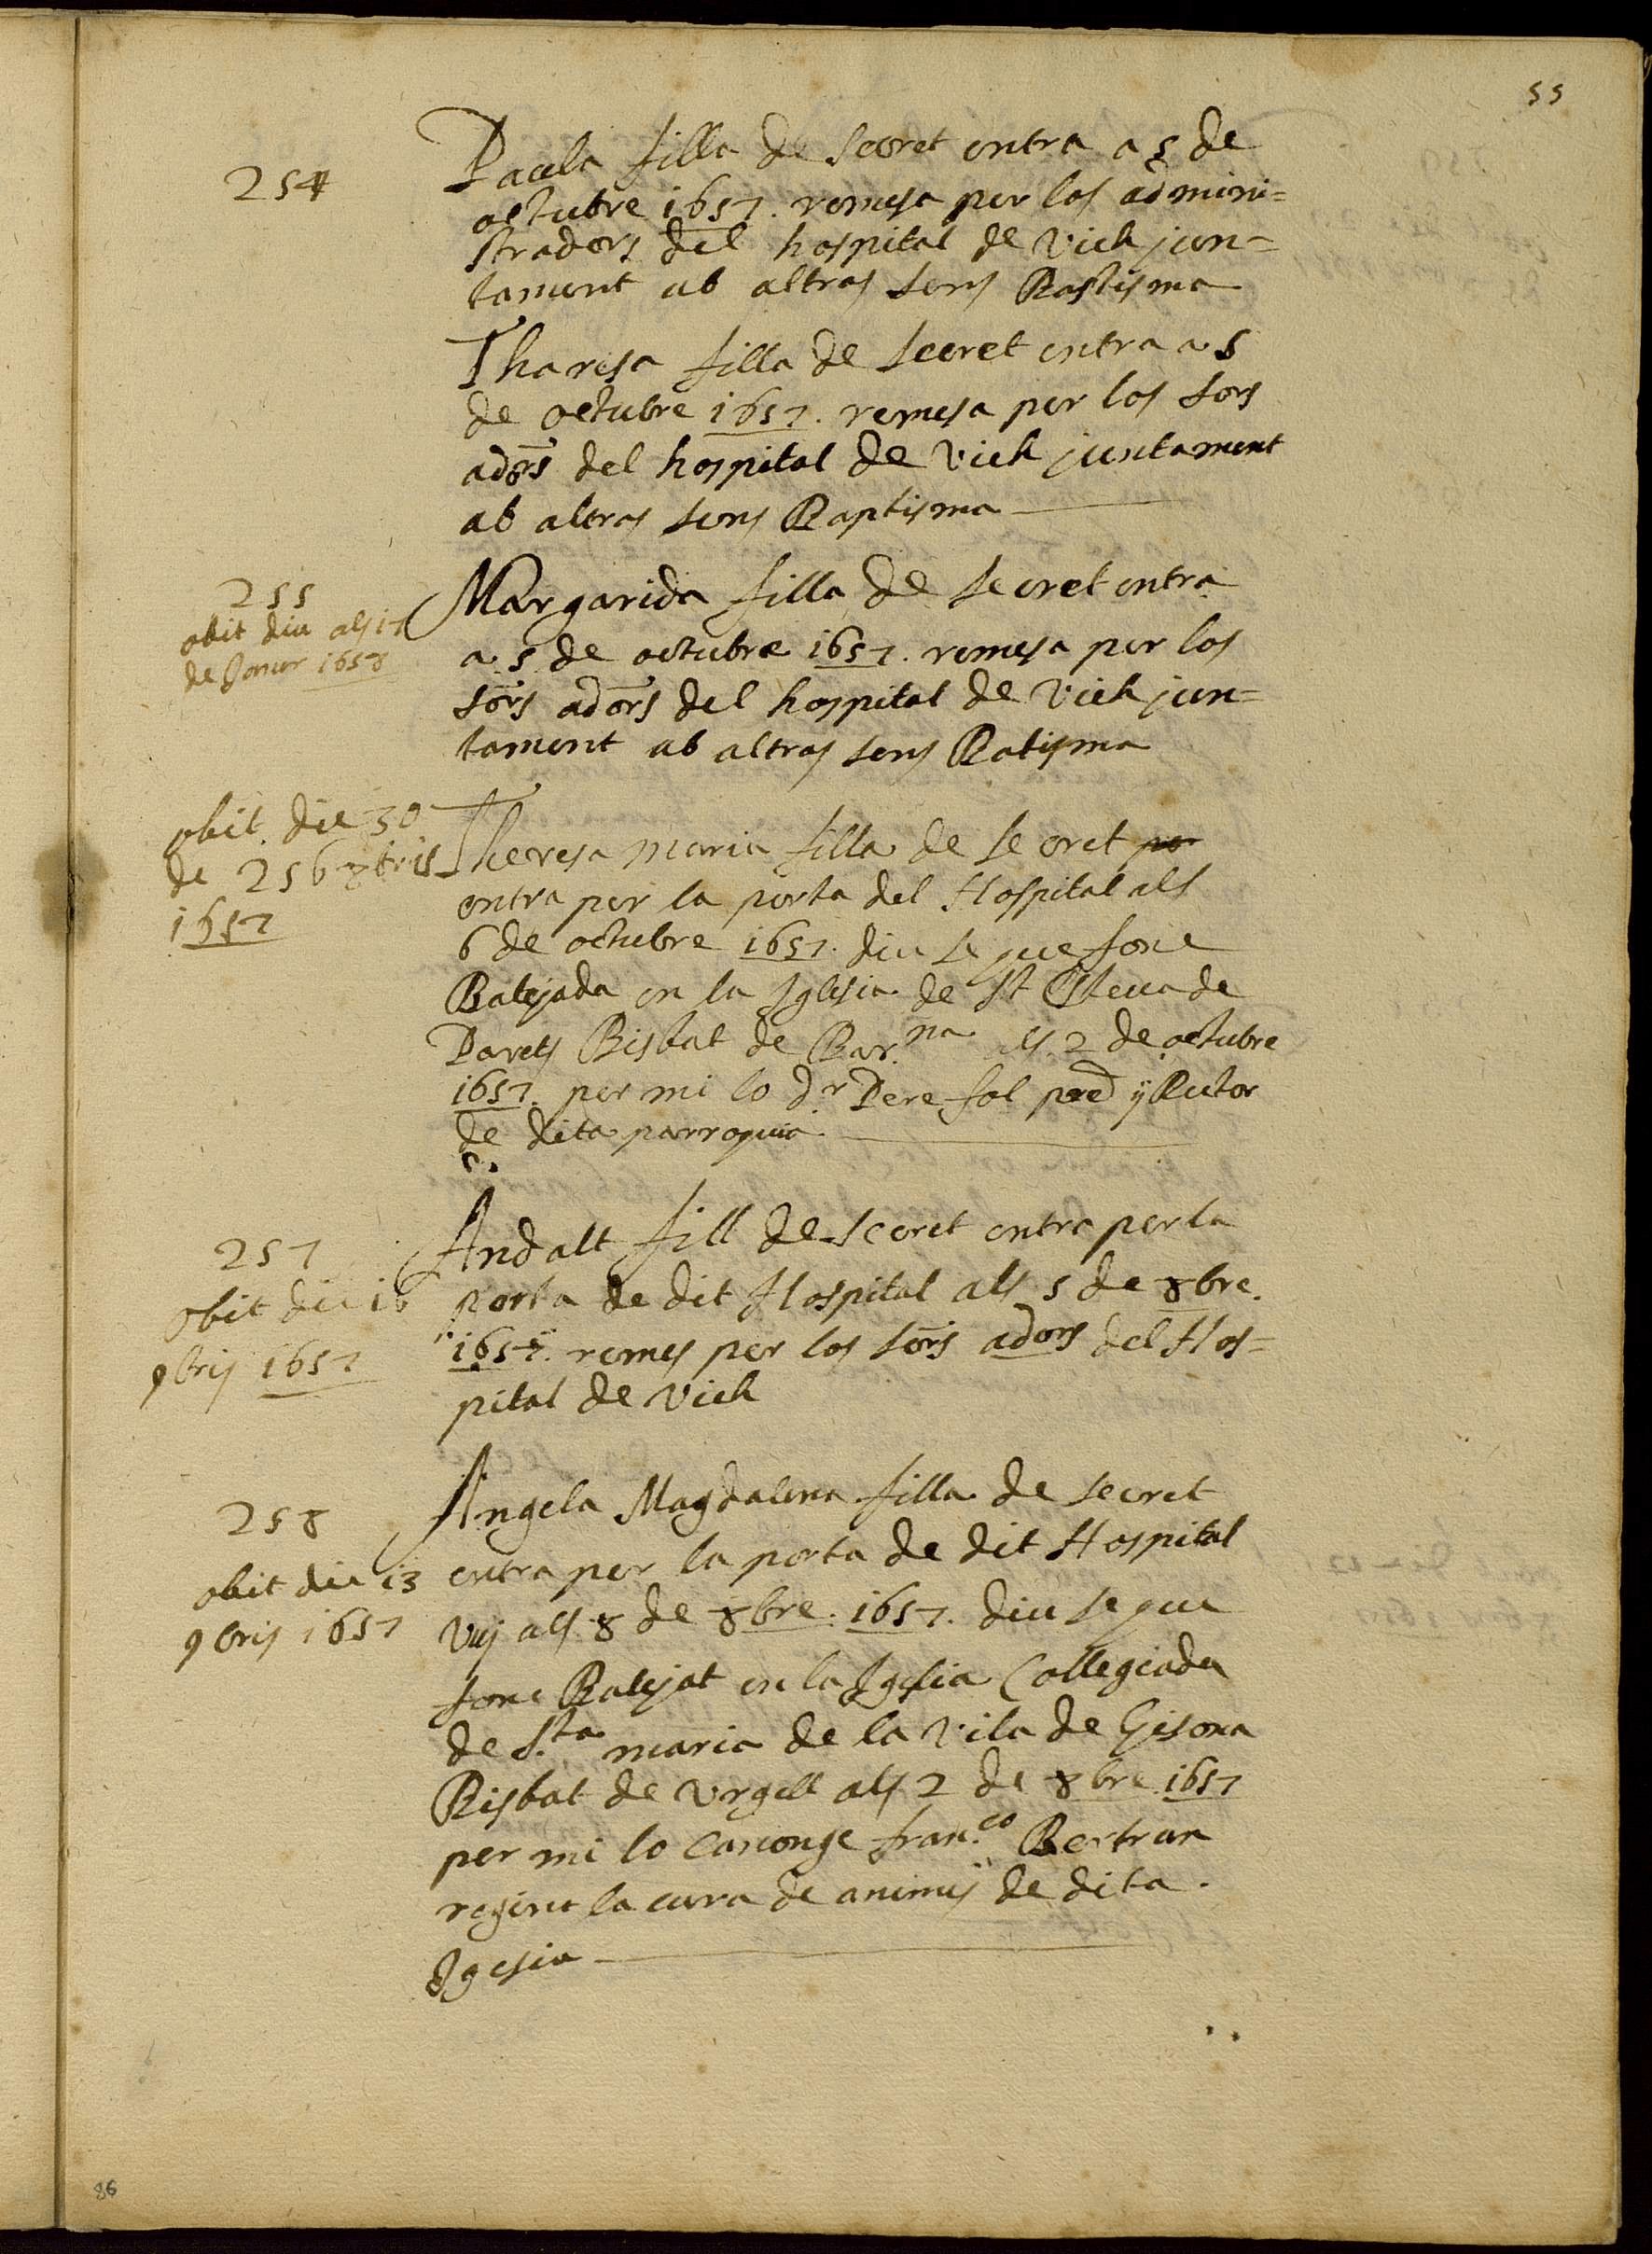 55
254
Paula filla de secret entra a 5 de
octubre 1657. remesa per los admini=
stradors del hospital de Vich jun=
tament ab altras sens Bastisma
Tharesa filla de secret entra a 5
de octubre 1657. remesa per los sors
adors del hospital de Vich juntament
ab altras sens Baptisma
255
obit die als 17
de Janer 1658
Margarida filla de secret entra
a 5 de octubre 1657. remesa per los
sors adors del hospital de Vich jun=
tament ab altras sens Batisma
obit die 30
de 256 8bris
1657
Theresa maria filla de secret per
entra per la porta del Hospital als
6 de octubre 1657. diu se que fonc
Batejada en la Iglesia de St Esteva de
Parets Bisbat de Bar.na als 2 de octubre
1657. per mi lo d.r Pere fol pred y Rector
de dita parroquia
257
obit die 16
9bris 1657
Andalt fill de secret entra per la
porta de dit Hospital als 5 de 8bre.
1657. remes per los sors adors del Hos=
pital de Vich
258
obit die 13
9bris 1657
Angela Magdalena filla de secret
entra per la porta de dit Hospital
vuy als 8 de 8bre. 1657. diu se que
fonc Batejat en la Iglesia Collegiada
de S.ta maria de la Vila de Gisona
Bisbat de Vrgell als 2 de 8bre 1657
per mi lo Canonge fran.co Bertran
regint la cura de animas de dita.
Igesia
86